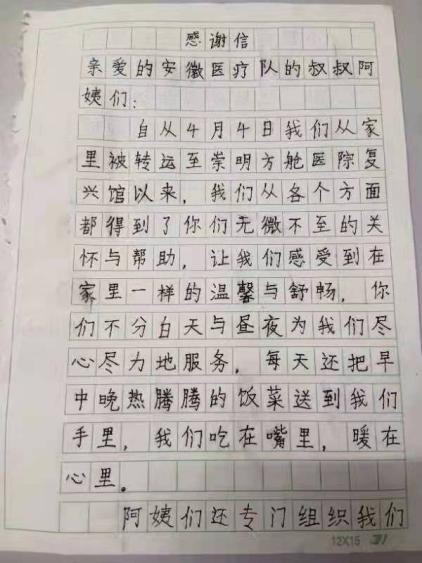 感谢信
亲爱的安徽医疗队的叔叔阿
姨们：
自从4月4日我们从家
里被转运至崇明方舱医院复
兴馆以来，我们从各个方面
都得到了你们无微不至的关
怀与帮助，让我们感受到在
家里一样的温馨与舒畅，你
们不分白天与昼夜为我们尽
心尽力地服务，每天还把早
中晚热腾腾的饭菜送到我们
手里，我们吃在嘴里，暖在
心里。
阿姨们还专门组织我们
12X15